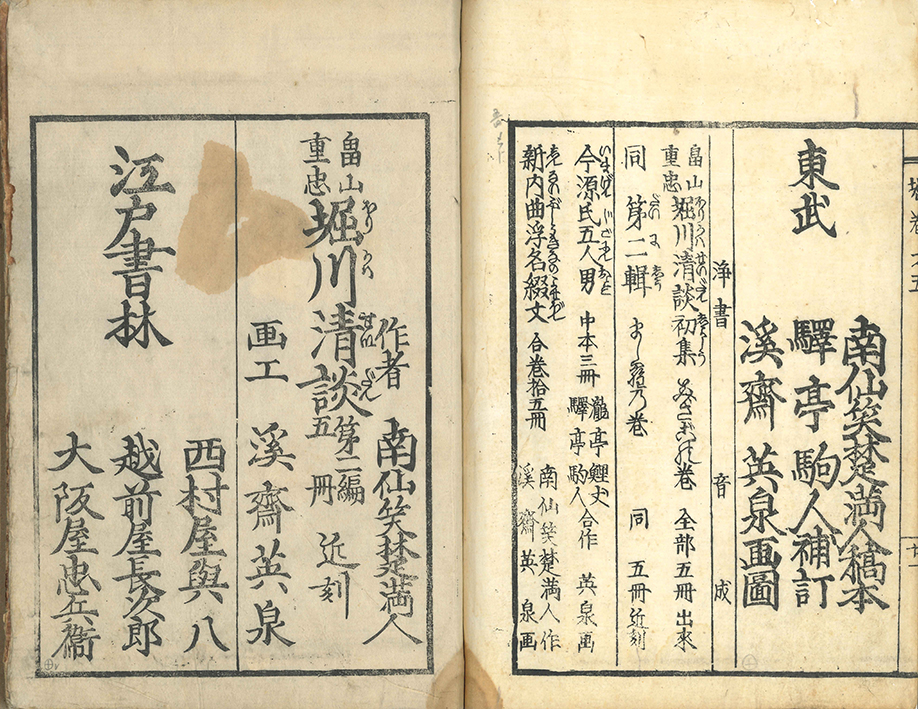 東武
南仙笑楚満人稿本
驛亭駒人補訂
溪齋英泉画圖
浄書 音成
畠山重忠 堀川清談初集 巻 全部五冊出来
同 第二輯 巻 同 五冊近刻
今源氏五人男 中本三冊 瀧亭鯉丈 驛亭駒人 合作 英泉画
新内曲浮名綴文 合巻拾五冊 南仙笑楚満人作 溪齋英泉画
作者 南仙笑楚満人
畠山重忠 堀川清談 第二編 五冊 近刻
画工 溪齋英泉
江戸書林
西村屋與八
越前屋長次郎
大阪屋忠兵衞